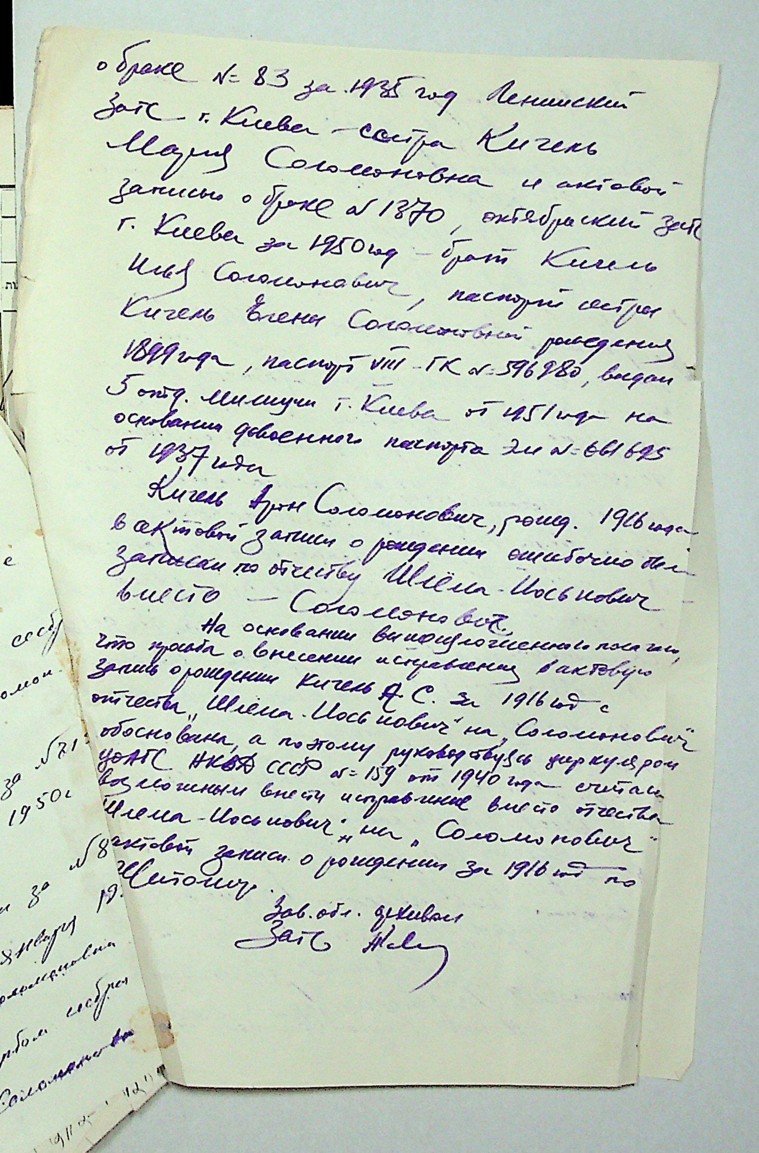 о браке №83 за 1935 год Ленинский
Загс г. Киева – сестра Кигель
Мария Соломоновна и актовой
записью о браке №1370, октябрьский загс
г. Киева за 1950 год – брат Кигель
Илья Соломонович, паспорт сестры
Кигель Елены Соломоновной рождения
1899 года, паспорт VIII-ГК №596980, выдан
5 отд. милиции г. Киева от 1951 года на
основании довоенного паспорта №661695
от 1937 года
Кигель Арон Соломонович, рожд. 1916 года
в актовой записи о рождении ошибочно был
записан по отчеству Шлёма-Иоськович
вместо – Соломонович.
На основании вышеизложенного полагаю,
что просьба о внесении исправления в актовую
запись о рождении Кигель А. С. за 1916 год с
отчества „Шлёма-Иоськович" на „Соломонович"
обоснована, а поэтому руководствуясь циркуляром
ЦОАГС НКВД СССР №159 от 1940 года считаю
возможным внести исправление вместо отчества
Шлёма-Иоськович" на „Соломонович"
актовой записи о рождении за 1916 год по
Житомир.
Зав. обл. архивом
Загс
сестр
за №71
1950 г
за №8
января 19
Соломоновна
сестра
Соломоновна